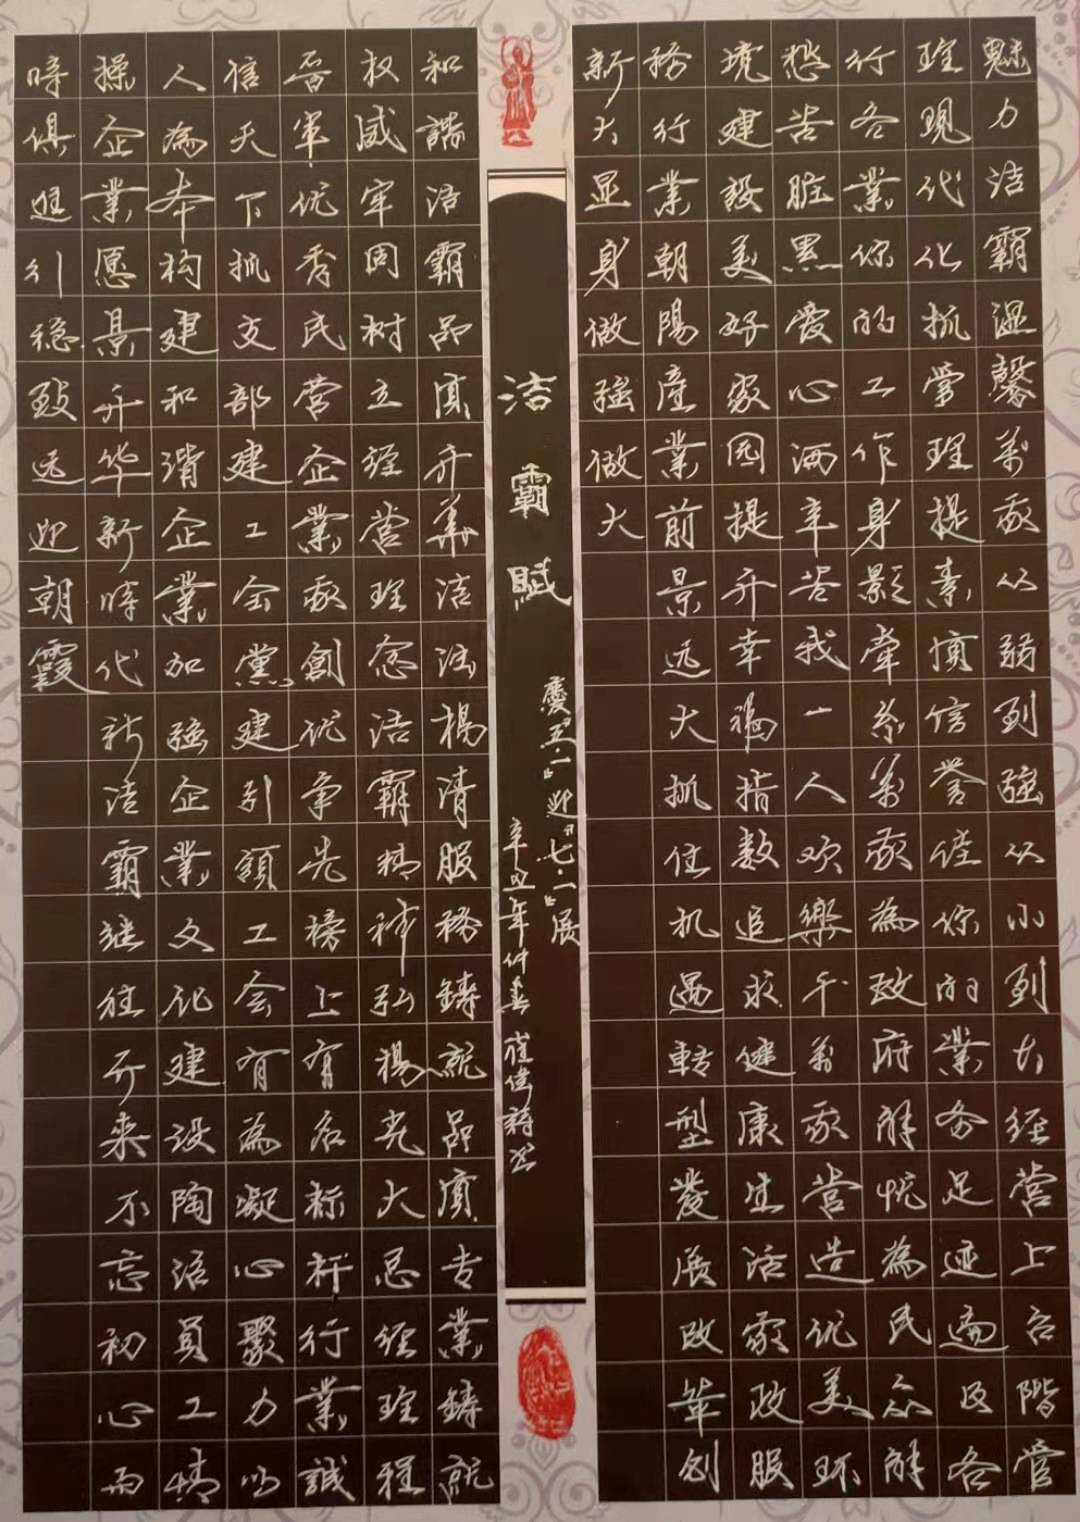 魅力洁霸温馨萬家从弱到强从小到大经营上台阶管
理现代化抓管理提素质信誉佳你的業务足迹遍及各
行各業你的工作身影牽系萬家為政府解忧為民众解
愁苦脏累爱心洒辛苦我一人欢樂千萬家营造优美环
境建設美好家园提升幸福指数追求健康生活家政服
務行業朝陽產業前景远大抓住机遇轉型發展改革创
新大显身做强做大
洁霸賦
慶"五·一"迎"七·一"展
辛丑年仲春 崔偉 书
和諧洁霸品质升華洁 揚清服務鑄就品质专業鑄就
权威牢固树立经营理念洁霸精神弘揚光大 经理程
晋軍优秀民营企業家創优争先榜上有名标杆行業誠
信天下抓支部建工会黨建引領工会有為凝心聚力以
人為本构建和谐企業加强企業文化建设陶冶員工情
操企業愿景升华新時代新洁霸继往开来不忘初心而
時俱进引稳致远迎朝霞